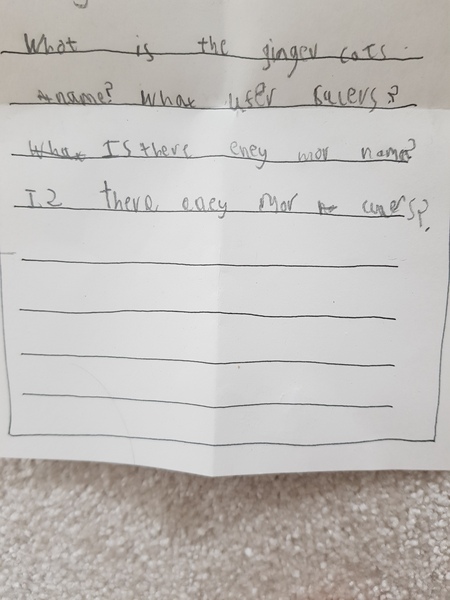 What is the ginger cats
name? What uter
IS there eney mor name?
I2 there eney mor